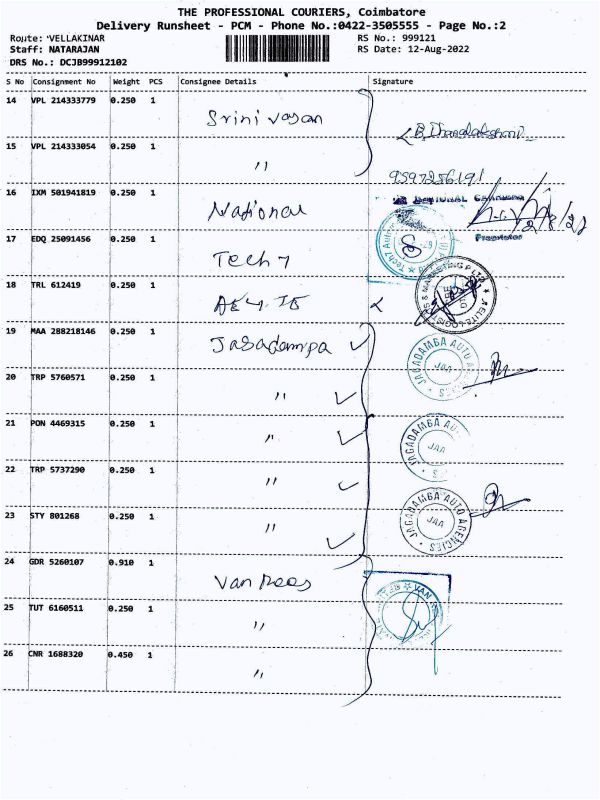 THE PROFESSIONAL COURIERS, Coimbatore
Delivery Runsheet - PCM - Phone No.:0422-3505555 - Page No.:2
Route: VELLAKINAR RS No.: 999121
Staff: NATARAJAN RS Date: 12-Aug-2022
DRS No.: DCJB99912102
S No Consignment No Weight PCS Consignee Details Signature
14 VPL 214333779 0.250 1 Srinivasan
15 VPL 214333054 0.250 1 "
9597256191
16 IXM 501941819 0.250 1 National
Proprietor
17 EDQ 25091456 0.250 1 Tech 7
18 TRL 612419 0.250 1
19 MAA 288218146 0.250 1 Jagadampa
JAGADAMBA AUTO
JAA
20 TRP 5760571 0.250 1 "
21 PON 4469315 0.250 1 "
JAGADAMBA AU
JAA
22 TRP 5737290 0.250 1 "
23 STY 801268 0.250 1 "
JAGADAMBA AUTO AGENCIES
JAA
24 GDR 5260107 0.910 1 Van Rees
25 TUT 6160511 0.250 1 "
26 CNR 1688320 0.450 1 "